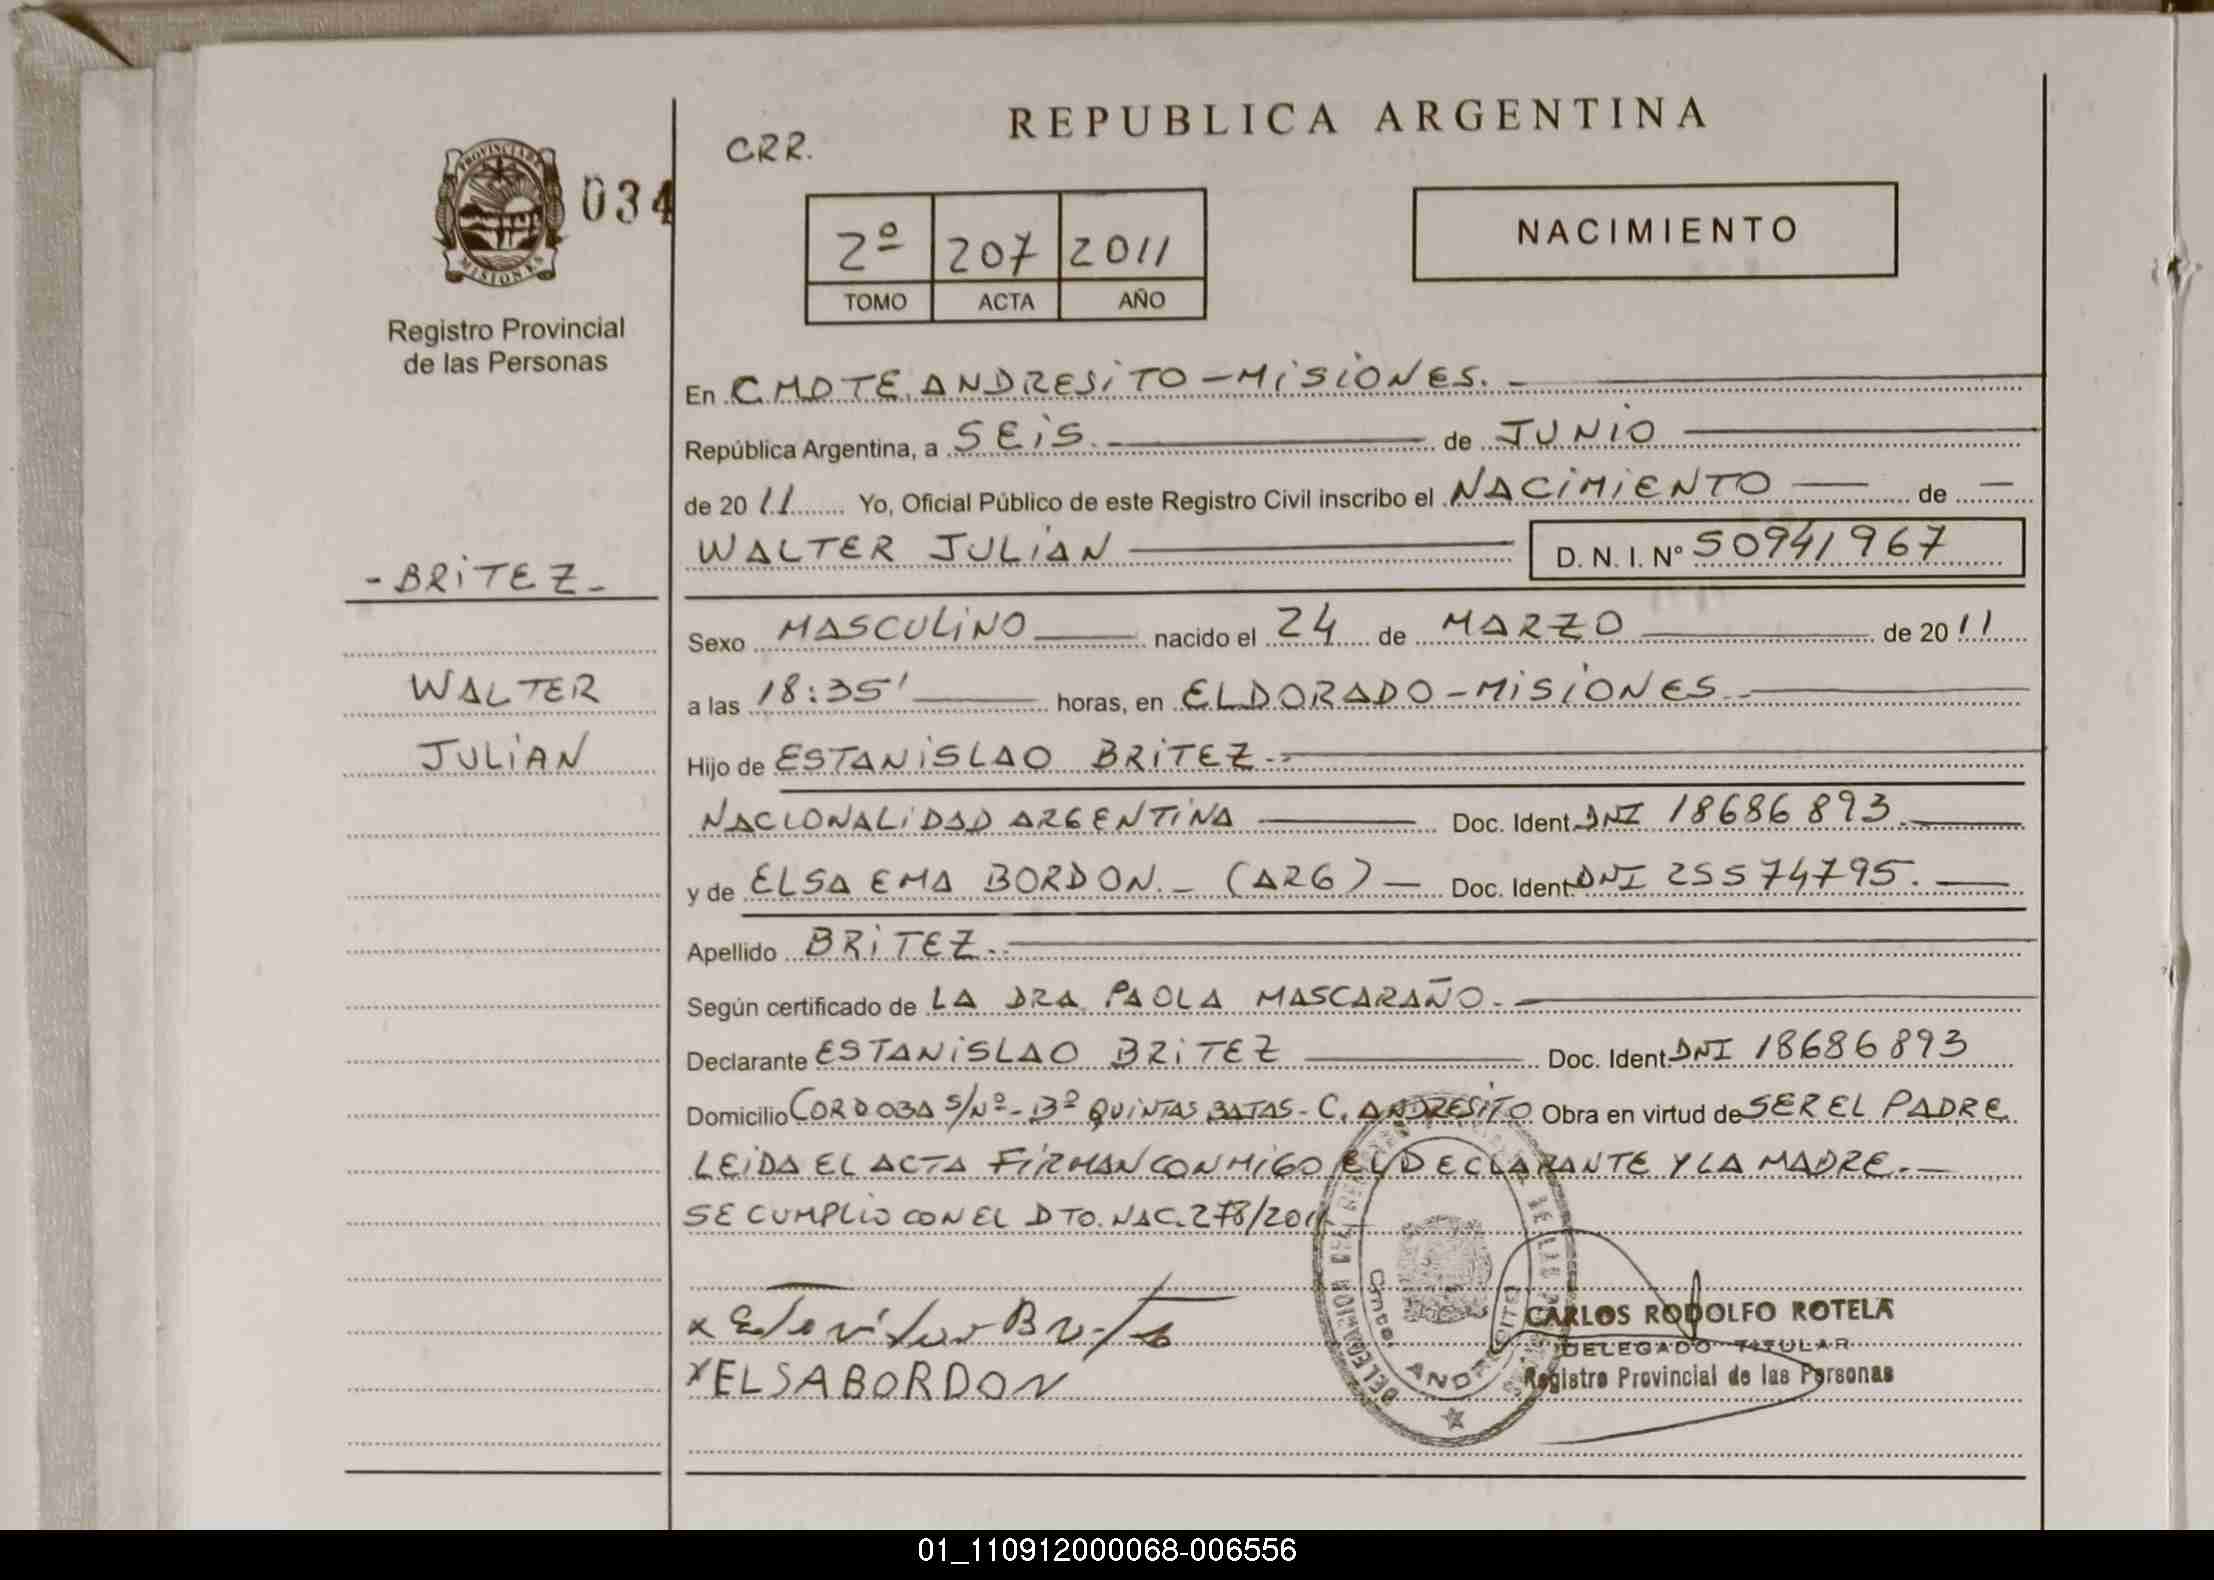 REPUBLICA ARGENTINA
CRR.
PROVINCIA DE
MISIONES
034
2º 207 2011
TOMO ACTA AÑO
NACIMIENTO
Registro Provincial
de las Personas
En CMDTE. ANDRESITO - MISIONES. -
República Argentina, a SEIS. de JUNIO
de 20 11 Yo, Oficial Público de este Registro Civil inscribo el NACIMIENTO — de —
WALTER JULIAN D. N. I. Nº 50941967
- BRITEZ -
Sexo MASCULINO nacido el 24 de MARZO de 20 11
WALTER
a las 18:35' horas, en ELDORADO - MISIONES. -
JULIAN
Hijo de ESTANISLAO BRITEZ. -
NACIONALIDAD ARGENTINA Doc. Ident. DNI 18686893.
y de ELSA EMA BORDON. - (ARG) — Doc. Ident. DNI 25574795. —
Apellido BRITEZ. -
Según certificado de LA DRA PAOLA MASCARAÑO. -
Declarante ESTANISLAO BRITEZ Doc. Ident. DNI 18686893
Domicilio CORDOBA S/Nº - Bº QUINTAS BATAS - C. ANDRESITO Obra en virtud de SER EL PADRE
LEIDA EL ACTA FIRMAN CONMIGO EL DECLARANTE Y LA MADRE. -
SE CUMPLIO CON EL DTO. NAC. 278/2011 -
x
x ELSA BORDON
DELEGACION DEL REGISTRO DE LAS
Cmte. ANDRESITO
CARLOS RODOLFO ROTELA
DELEGADO TITULAR
Registro Provincial de las Personas
01_110912000068-006556